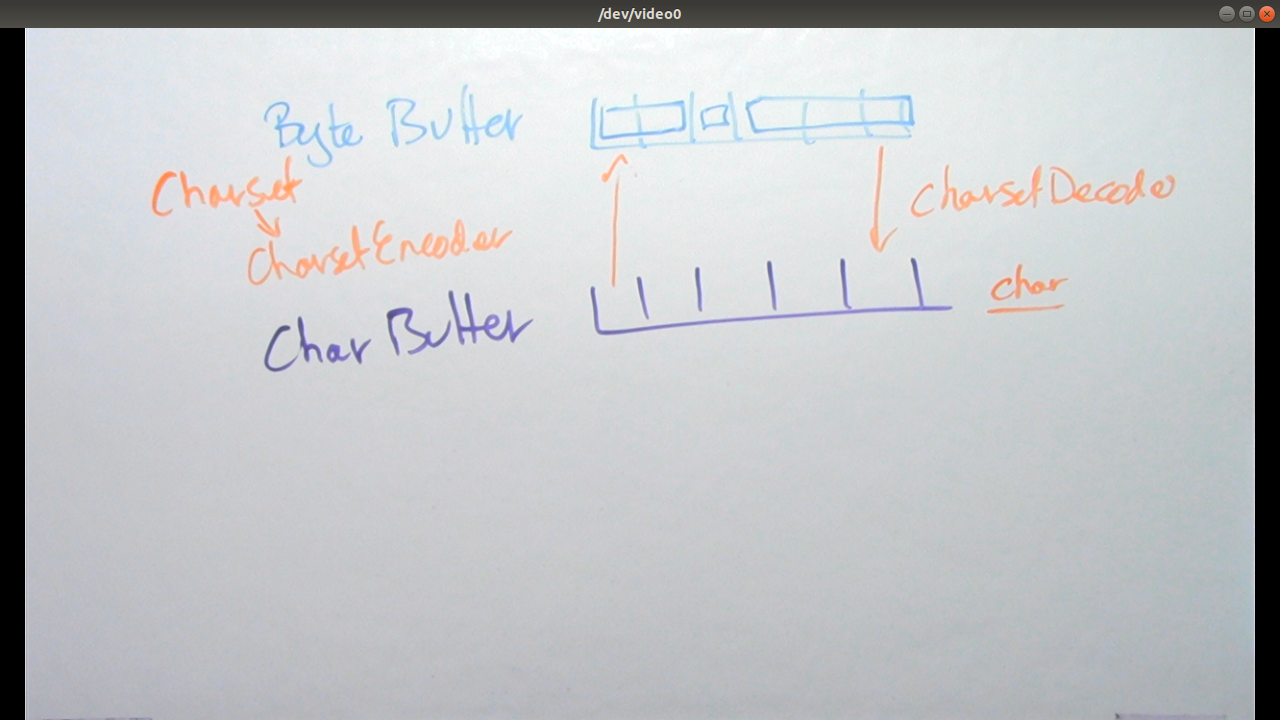 /dev/video0
Byte Buffer
Charset
CharsetDecode
CharsetEncoder
char
Char Buffer